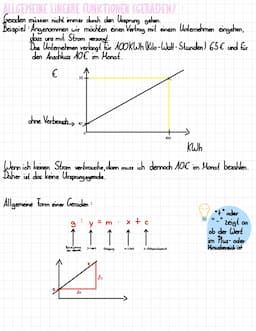 ALLGEMEINE LINEARE FUNKTIONEN (GERADEN)
Geraden müssen nicht immer durch den Ursprung gehen.
Beispiel: Angenommen wir möchten einen Vertrag mit einem Unternehmen eingehen,
dass uns mit Strom versorgt.
Das Unternehmen verlangt für 100KWh (Kilo-Watt-Stunden) 65€ und für
den Anschluss 10€ im Monat.
€
ohne Verbrauch
KWh
Wenn ich keinen Strom verbrauche, dann muss ich dennoch 10€ im Monat bezahlen.
Daher ist das keine Ursprungsgerade.
Allgemeine Form einer Geraden:
g: y = m · x + c
"+" oder
"-" zeigt an
ob der Wert
im Plus- oder
Minusbereich ist